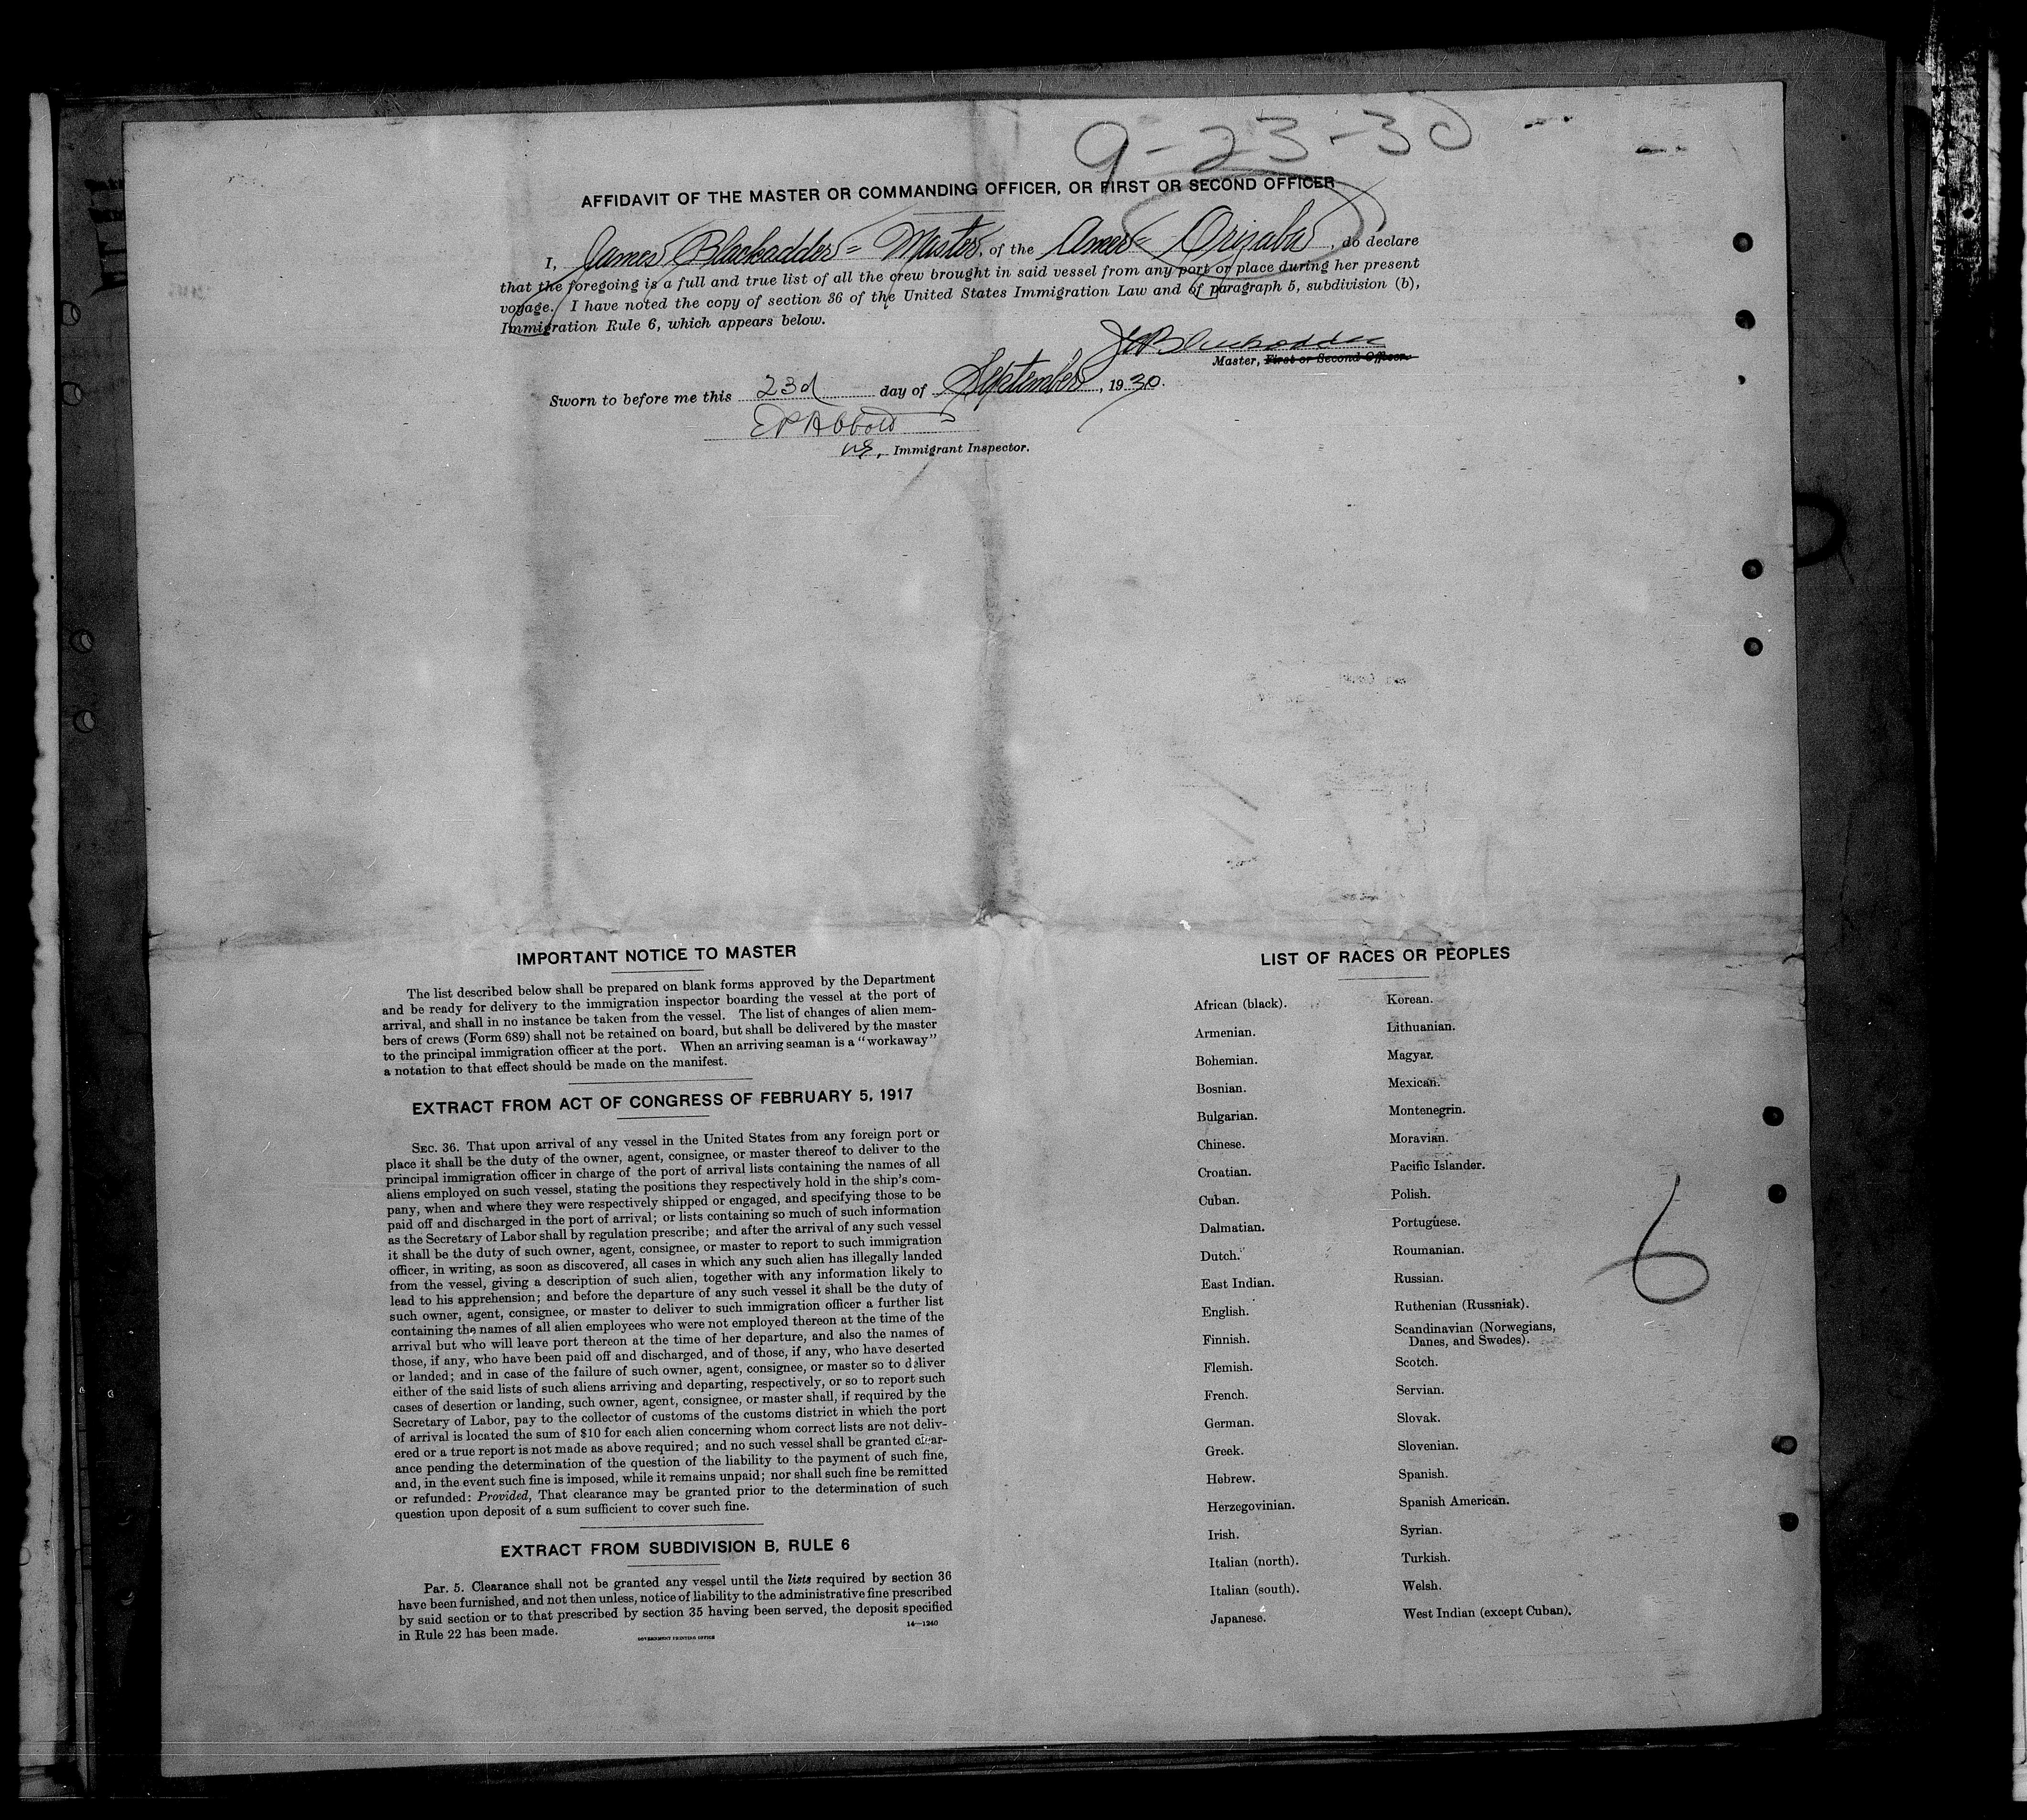 9-23-30
AFFIDAVIT OF THE MASTER OR COMMANDING OFFICER, OR FIRST OR SECOND OFFICER
I, James Blackadder = Master, of the Amer = Orizaba, do declare
that the foregoing is a full and true list of all the crew brought in said vessel from any port or place during her present
voyage. I have noted the copy of section 36 of the United States Immigration Law and of paragraph 5, subdivision (b),
Immigration Rule 6, which appears below.
Blackadder
Master, First or Second Officer.
Sworn to before me this 23d day of September, 1930.
Immigrant Inspector.
IMPORTANT NOTICE TO MASTER
The list described below shall be prepared on blank forms approved by the Department
and be ready for delivery to the immigration inspector boarding the vessel at the port of
arrival, and shall in no instance be taken from the vessel. The list of changes of alien mem-
bers of crews (Form 689) shall not be retained on board, but shall be delivered by the master
to the principal immigration officer at the port. When an arriving seaman is a "workaway"
a notation to that effect should be made on the manifest.
EXTRACT FROM ACT OF CONGRESS OF FEBRUARY 5, 1917
SEC. 36. That upon arrival of any vessel in the United States from any foreign port or
place it shall be the duty of the owner, agent, consignee, or master thereof to deliver to the
principal immigration officer in charge of the port of arrival lists containing the names of all
aliens employed on such vessel, stating the positions they respectively hold in the ship's com-
pany, when and where they were respectively shipped or engaged, and specifying those to be
paid off and discharged in the port of arrival; or lists containing so much of such information
as the Secretary of Labor shall by regulation prescribe; and after the arrival of any such vessel
it shall be the duty of such owner, agent, consignee, or master to report to such immigration
officer, in writing, as soon as discovered, all cases in which any such alien has illegally landed
from the vessel, giving a description of such alien, together with any information likely to
lead to his apprehension; and before the departure of any such vessel it shall be the duty of
such owner, agent, consignee, or master to deliver to such immigration officer a further list
containing the names of all alien employees who were not employed thereon at the time of the
arrival but who will leave port thereon at the time of her departure, and also the names of
those, if any, who have been paid off and discharged, and of those, if any, who have deserted
or landed; and in case of the failure of such owner, agent, consignee, or master so to deliver
either of the said lists of such aliens arriving and departing, respectively, or so to report such
cases of desertion or landing, such owner, agent, consignee, or master shall, if required by the
Secretary of Labor, pay to the collector of customs of the customs district in which the port
of arrival is located the sum of $10 for each alien concerning whom correct lists are not deliv-
ered or a true report is not made as above required; and no such vessel shall be granted clear-
ance pending the determination of the question of the liability to the payment of such fine,
and, in the event such fine is imposed, while it remains unpaid; nor shall such fine be remitted
or refunded: Provided, That clearance may be granted prior to the determination of such
question upon deposit of a sum sufficient to cover such fine.
EXTRACT FROM SUBDIVISION B, RULE 6
Par. 5. Clearance shall not be granted any vessel until the lists required by section 36
have been furnished, and not then unless, notice of liability to the administrative fine prescribed
by said section or to that prescribed by section 35 having been served, the deposit specified
in Rule 22 has been made.
GOVERNMENT PRINTING OFFICE
14—1240
LIST OF RACES OR PEOPLES
African (black).
Armenian.
Bohemian.
Bosnian.
Bulgarian.
Chinese.
Croatian.
Cuban.
Dalmatian.
Dutch.
East Indian.
English.
Finnish.
Flemish.
French.
German.
Greek.
Hebrew.
Herzegovinian.
Irish.
Italian (north).
Italian (south).
Japanese.
Korean.
Lithuanian.
Magyar.
Mexican.
Montenegrin.
Moravian.
Pacific Islander.
Polish.
Portuguese.
Roumanian.
Russian.
Ruthenian (Russniak).
Scandinavian (Norwegians,
Danes, and Swedes).
Scotch.
Servian.
Slovak.
Slovenian.
Spanish.
Spanish American.
Syrian.
Turkish.
Welsh.
West Indian (except Cuban).
6